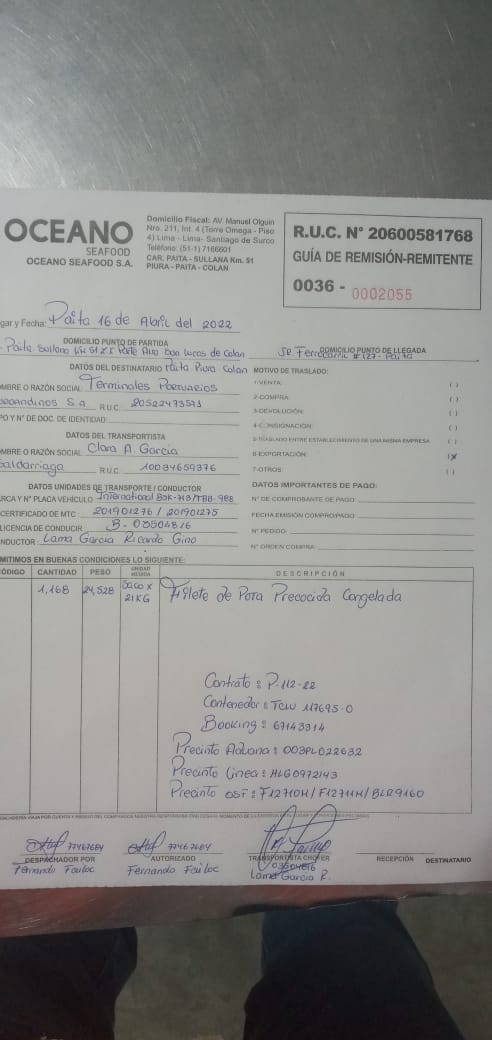 OCEANO
SEAFOOD
OCEANO SEAFOOD S.A.
Domicilio Fiscal: AV. Manuel Olguin
Nro. 211, Int. 4 (Torre Omega - Piso
4) Lima - Lima- Santiago de Surco
Teléfono: (51-1) 7166601
CAR. PAITA - SULLANA Km. 51
PIURA - PAITA - COLAN
R.U.C. N° 20600581768
GUÍA DE REMISIÓN-REMITENTE
0036 - 0002055
gar y Fecha: Paita 16 de Abril del 2022
DOMICILIO PUNTO DE PARTIDA
DOMICILIO PUNTO DE LLEGADA
San Lucas de Colan
Ferrocarril #127- Paita
DATOS DEL DESTINATARIO Paita Piura Colan
MOTIVO DE TRASLADO:
MBRE O RAZÓN SOCIAL Terminales Portuarios
1-VENTA ( )
S.A R.U.C. 20522473571
2-COMPRA ( )
PO Y N° DE DOC. DE IDENTIDAD:
3-DEVOLUCIÓN: ( )
DATOS DEL TRANSPORTISTA
4-CONSIGNACIÓN: ( )
MBRE O RAZÓN SOCIAL Clara A. Garcia
5-TRASLADO ENTRE ESTABLECIMIENTO DE UNA MISMA EMPRESA ( )
Saldarriaga R.U.C. 10034659376
6-EXPORTACIÓN (X)
7-OTROS: ( )
DATOS UNIDADES DE TRANSPORTE / CONDUCTOR
DATOS IMPORTANTES DE PAGO:
ARCA Y N° PLACA VEHÍCULO International
N° DE COMPROBANTE DE PAGO:
CERTIFICADO DE MTC 201901276 / 201901275
FECHA EMISIÓN COMPRO/PAGO:
LICENCIA DE CONDUCIR B- 03504816
N° PEDIDO:
NDUCTOR Lama Garcia Ricardo Gino
N° ORDEN COMPRA:
MITIMOS EN BUENAS CONDICIONES LO SIGUIENTE:
ÓDIGO CANTIDAD PESO UNIDAD MEDIDA DESCRIPCIÓN
1,168 24,528 Saco x 21KG Filete de Pota Precocida Congelada
Contrato : P-112-22
Contenedor : TCLU 117695-0
Booking : 67143314
Precinto Aduana : 003PL022632
Precinto Linea : HLG0972143
Precinto OSF : F1271OH/ F1271IH/ BLR9160
77467684
77467684
DESPACHADOR POR
AUTORIZADO
TRANSPORTISTA CHOFER
RECEPCIÓN
DESTINATARIO
Fernando Failoc
Fernando Failoc
03504816
Lama Garcia R.